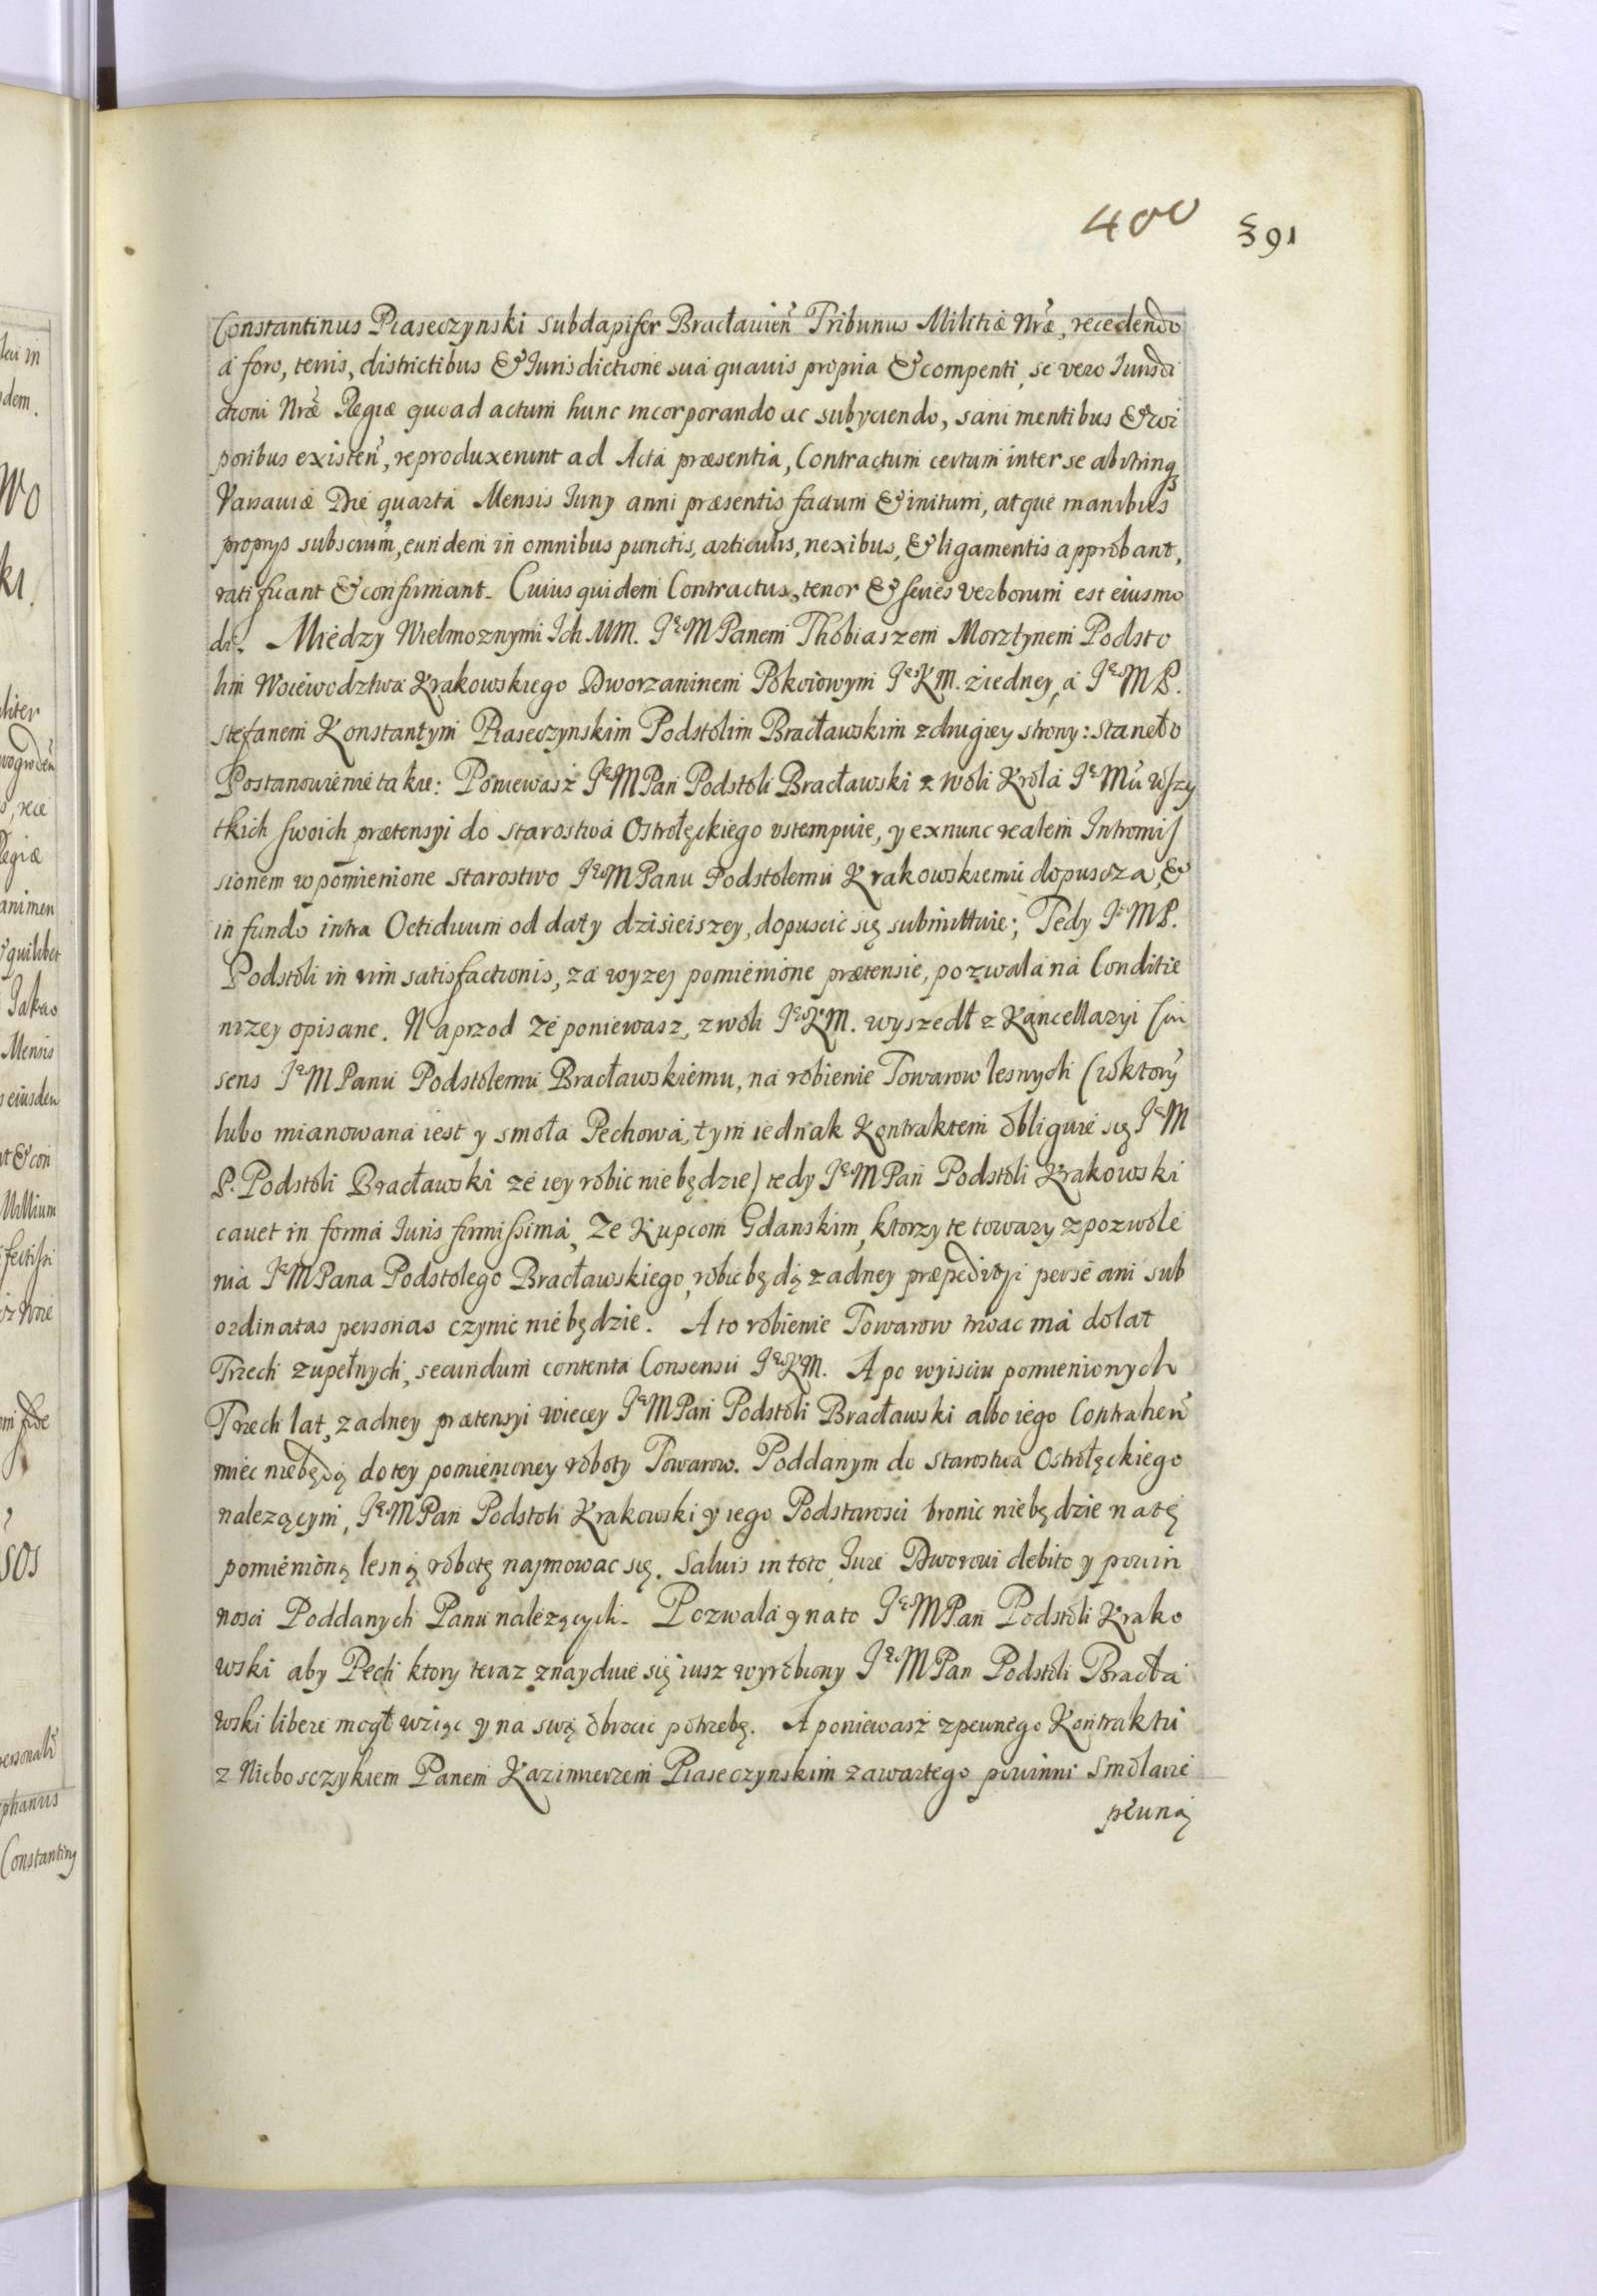 400 391
Constantinus Piaseczynski subdapifer Bracłauien̄ Tribunus Militiæ Nræ, recedendo
á foro, terris, districtibus & Iurisdictione suá quauis propria & compenti, se vero Iurisdi
ctioni Nræ Regiæ quoad actum hunc incorporando ac subyciendo, sani mentibus & cor
poribus existen̄, reproduxerunt ad Acta præsentia, Contractum certum inter se ab utrinq
Varsauiæ Die quarta Mensis Iuny anni præsentis factum & initum, atque manibus
proprys subscrium̄, eundem in omnibus punctis, articulis, nexibus, & ligamentis approbant,
ratificant & confirmant. Cuius quidem Contractus, tenor & series verborum est eiusmo
di. Miedzy Wielmoznymi Ich MM. JeoM Panem Thobiaszem Morztynem Podsto
lim Woiewodztwa Krakowskiego Dworzaninem Pokoiowym JeoKM. ziedney, á JeoMP.
stefanem Konstantym Piaseczynskim Podstolim Bracławskim z drugiey strony: staneło
Postanowienie takie: Poniewasz JeoM Pan Podstoli Bracławski z woli Krola JeoMu wszy
tkich swoich prætensyi do starostwa Ostrołęckiego vstempuie, y ex nunc realem Intromis
sionem w pomienione starostwo JeoM Panu Podstolemu Krakowskiemu dopuscza, &
in fundo intra Octiduum od daty dzisieiszey, dopuscic się submittuie; Tedy JeoMP.
Podstoli in vim satisfactionis, za wyzey pomienione prætensie, pozwala na Conditie
nizey opisane. Naprzod ze poniewasz, z woli JeoKM. wyszedł z Kancellaryi Con
sens JeoM Panu Podstolemu Bracławskiemu, na robienie Towarow lesnych (w ktory̅
lubo mianowana iest y smoła Pechowa, tym iednak Kontraktem obliguie się JeoM
P. Podstoli Bracławski ze iey robic nie będzie) tedy JeoM Pan Podstoli Krakowski
cauet in forma Iuris firmissima, Ze Kupcom Gdanskim, ktorzy te towary z pozwole
nia JeoM Pana Podstolego Bracławskiego, robic będą zadney præpedityi per se ani sub
ordinatas personas czynic nie będzie. A to robienie Towarow trwac ma do lat
Trzech zupełnych, secundum contenta Consensu JeoKM. A po wyisciu pomienionych
Trzech lat, zadney prætensyi wiecey JeoM Pan Podstoli Bracławski albo iego Contrahen̄
miec nie będą do tey pomienioney roboty Towarow. Poddanym do starostwa Ostrołęckiego
nalezącym, JeoM Pan Podstoli Krakowski y iego Podstarosci bronic nie będzie na tę
pomienioną lesną robotę najmowac się. Saluis in toto Iure Dworowi debito y powin
nosci Poddanych Panu nalezących. Pozwala y na to JeoM Pan Podstoli Krako
wski aby Pech ktory teraz znayduie się iusz wyrobiony JeoM Pan Podstoli Bracła
wski libere mogł wziąc y na swą obrocic potrzebę. A poniewasz z pewnego Kontraktu
z Nieboszczykiem Panem Kazimierzem Piaseczynskim zawartego powinni Smolarze
pewną